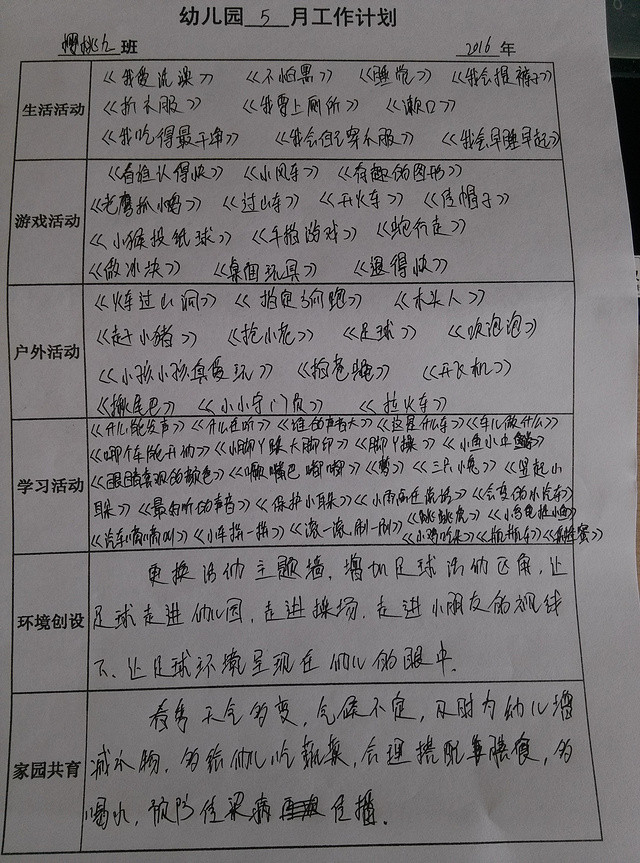 幼儿园 5 月工作计划
班 2016 年
生活活动
《我爱洗澡》 《不怕黑》 《睡觉》 《我会提裤子》
《折衣服》 《我要上厕所》 《漱口》
《我吃得最干净》 《我会自己穿衣服》 《我会早睡早起》
游戏活动
《看谁认得快》 《小风车》 《有趣的图形》
《老鹰抓小鸡》 《过山车》 《开火车》 《传帽子》
《小猴投纸球》 《手指游戏》 《蛇行走》
《做冰块》 《桌面玩具》 《退得快》
户外活动
《火车过山洞》 《指定方向跑》 《木头人》
《赶小猪》 《抢小花》 《足球》 《吹泡泡》
《小孩小孩真爱玩》 《开飞机》
《揪尾巴》 《小小守门员》 《拉火车》
学习活动
《什么能发声》 《什么在响》 《谁的声音大》 《这是什么车》 《车儿做什么》
《哪个车能开动》 《小脚丫踩大脚印》 《脚丫操》
《眼睛喜欢的颜色》 《嘟嘴巴 嘟嘟》 《三只小兔》 《竖起小
耳朵》 《最好听的声音》 《保护小耳朵》 《小雨雨在说话》 《会变的小汽车》
《汽车嘀嘀叫》 《小车拼一拼》 《滚一滚、刷一刷》 《跳跳虎》
《小鸡吃米》
环境创设
更换活动主题墙，增加足球活动区角，让
足球走进幼儿园，走进操场，走进小朋友的视线
下、让足球环境呈现在幼儿的眼中．
家园共育
春季天气多变，气候不定，及时为幼儿增
减衣物，多给幼儿吃蔬菜，合理搭配膳食，多
喝水，预防传染病传播．